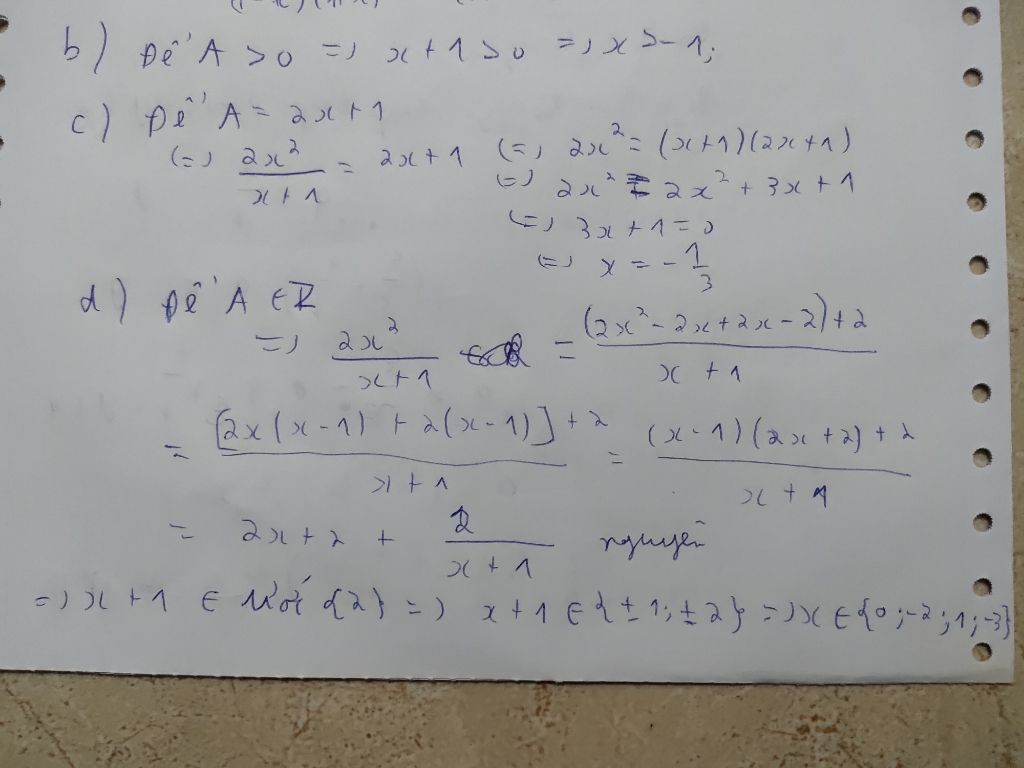 b) Để A > 0 => x + 1 > 0 => x > - 1;
c) Để A = 2x + 1
<=> 2x²/(x + 1) = 2x + 1 <=> 2x² = (x+1)(2x+1)
<=> 2x² = 2x² + 3x + 1
<=> 3x + 1 = 0
<=> x = - 1/3
d) Để A ∈ Z
=> 2x²/(x+1) = ((2x² - 2x + 2x - 2) + 2)/(x + 1)
= ([2x(x-1) + 2(x-1)] + 2)/(x + 1) = ((x-1)(2x+2) + 2)/(x + 1)
= 2x + 2 + 2/(x + 1) nguyên
=> x + 1 ∈ Ước {2} => x + 1 ∈ {±1; ±2} => x ∈ {0; -2; 1; -3}